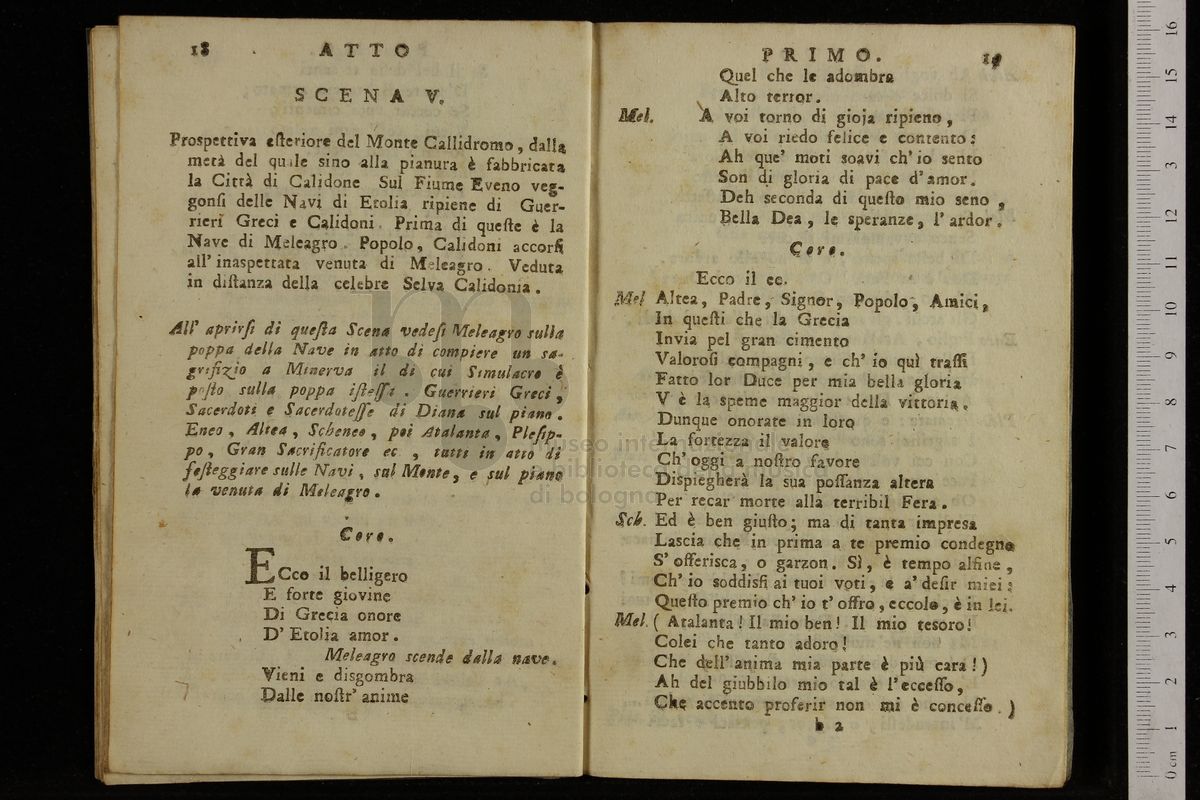 18 ATTO
SCENA V.
Prospettiva esteriore del Monte Callidromo, dalla
metà del quale sino alla pianura è fabbricata
la Città di Calidone Sul Fiume Eveno veg-
gonsi delle Navi di Etolia ripiene di Guer-
rieri Greci e Calidoni. Prima di queste è la
Nave di Meleagro. Popolo, Calidoni accorsi
all' inaspettata venuta di Meleagro. Veduta
in distanza della celebre Selva Calidonia.
All' aprirsi di questa Scena vedesi Meleagro sulla
poppa della Nave in atto di compiere un sa-
grifizio a Minerva il di cui Simulacro è
posto sulla poppa istessa. Guerrieri Greci,
Sacerdoti e Sacerdotesse di Diana sul piano.
Eneo, Altea, Scheneo, poi Atalanta, Plesip-
po, Gran Sacrificatore ec, tutti in atto di
festeggiare sulle Navi, sul Monte, e sul piano
la venuta di Meleagro.
Coro.
ECco il belligero
E forte giovine
Di Grecia onore
D' Etolia amor.
Meleagro scende dalla nave.
Vieni e disgombra
Dalle nostr' anime
PRIMO. 19
Quel che le adombra
Alto terror.
Mel. A voi torno di gioja ripieno,
A voi riedo felice e contento:
Ah que' moti soavi ch' io sento
Son di gloria di pace d' amor.
Deh seconda di questo mio seno,
Bella Dea, le speranze, l' ardor.
Coro.
Ecco il ec.
Mel Altea, Padre, Signor, Popolo, Amici,
In questi che la Grecia
Invia pel gran cimento
Valorosi compagni, e ch' io quì trassi
Fatto lor Duce per mia bella gloria
V è la speme maggior della vittoria.
Dunque onorate in loro
La fortezza il valore
Ch' oggi a nostro favore
Dispiegherà la sua possanza altera
Per recar morte alla terribil Fera.
Sch. Ed è ben giusto; ma di tanta impresa
Lascia che in prima a te premio condegno
S' offerisca, o garzon. Sì, è tempo alfine,
Ch' io soddisfi ai tuoi voti, e a' desir miei:
Questo premio ch' io t' offro, eccolo, è in lei.
Mel. ( Atalanta! Il mio ben! Il mio tesoro!
Colei che tanto adoro!
Che dell' anima mia parte è più cara!)
Ah del giubbilo mio tal è l' eccesso,
Che accento proferir non mi è concesso.)
b 2
m
museo internazionale
e biblioteca della musica
di bologna
0 cm 1 2 3 4 5 6 7 8 9 10 11 12 13 14 15 16